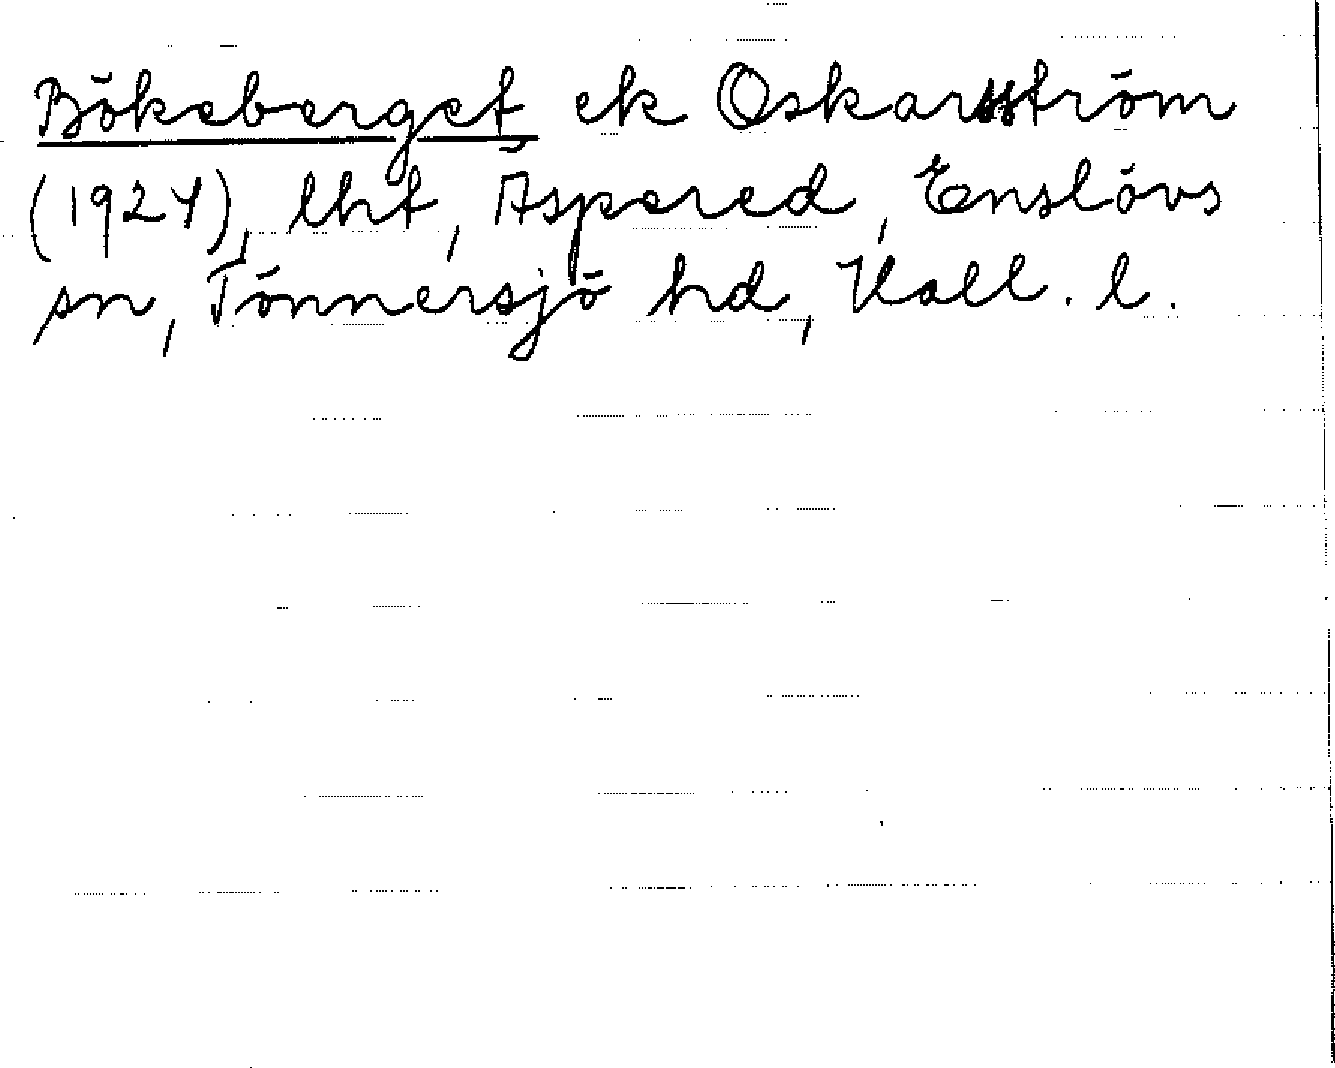 Bökeberget ek Oskarsström
(1924), lht, Äspered, Enslövs
sn, Tönnersjö hd, Hall. l.